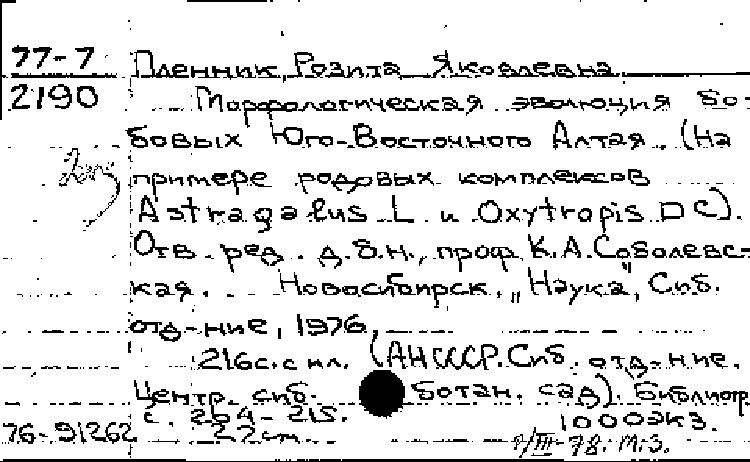 77-7
2190
Пленник, Розита Яковлевна
Морфологическая эволюция бо-
бовых Юго-Восточного Алтая. (На
примере родовых комплексов
Astragalus L. и Oxytropis DC).
Отв. ред. д.б.н., проф. К.А. Соболевс-
кая. Новосибирск, "Наука", Сиб.
отд-ние, 1976,
216с. с ил. (АН СССР. Сиб. отд-ние.
Центр. сиб. ботан. сад). Библиогр.
с. 204-215. 1000экз.
76-91262 22см. 9/III-78. М.З.